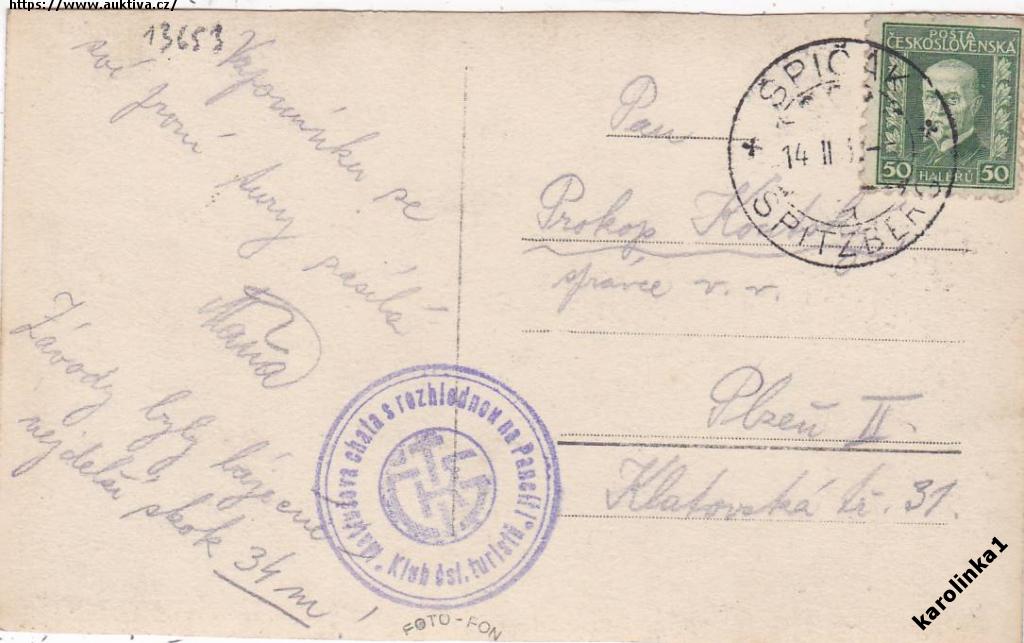 https://www.auktiva.cz/
13653
Vzpomínku se
své první tury zasílá
Máňa
Závody byly báječné
nejdelší skok 34 m!
POŠTA
ČESKOSLOVENSKÁ
50 HALÉŘŮ 50
ŠPIČÁK
14 II
SPITZBERG
Pan
Prokop
správce v. v.
Plzeň II.
Klatovská tř. 31.
chata s rozhlednou na Pancíři
Klub čsl. turistů
FOTO-FON
karolinka1